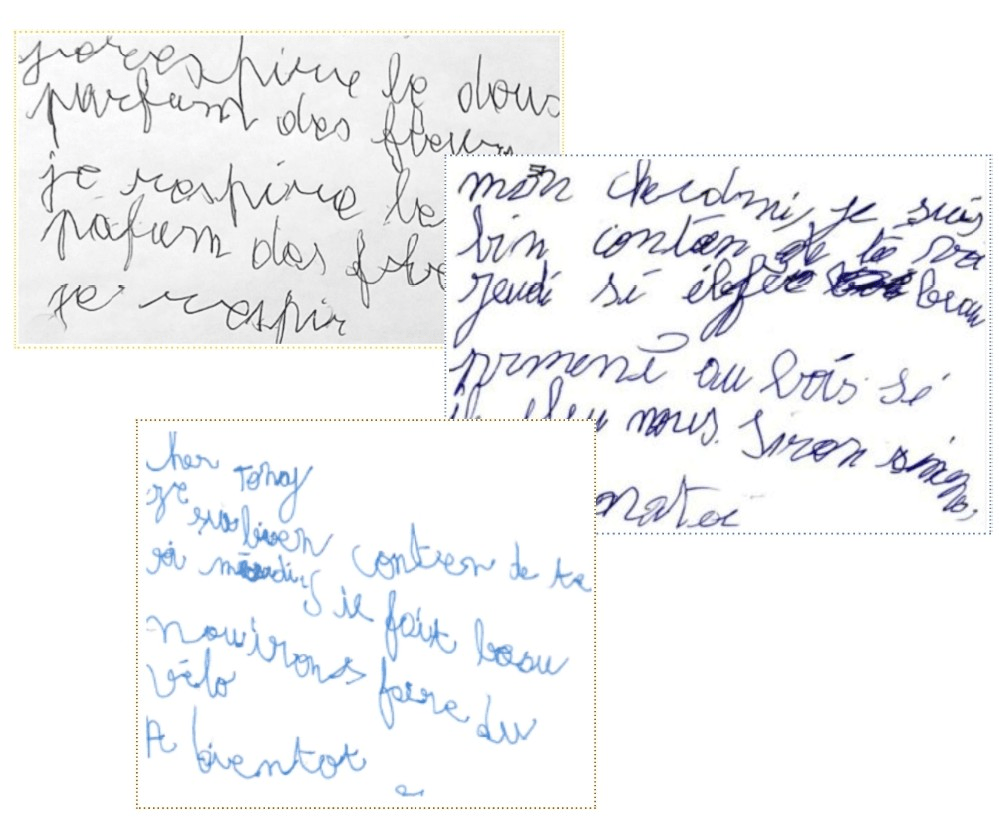 je respire le doux
parfum des fleurs
je respire le
pafum des
je respir
mon cherami, je suis
bin contan de te
jeudi si il beau
prmené au bois si
il pleu nous. Siron
cher Tony
je suibien contien de te
s il fait beau
nouirons faire du
vélo
A bientot